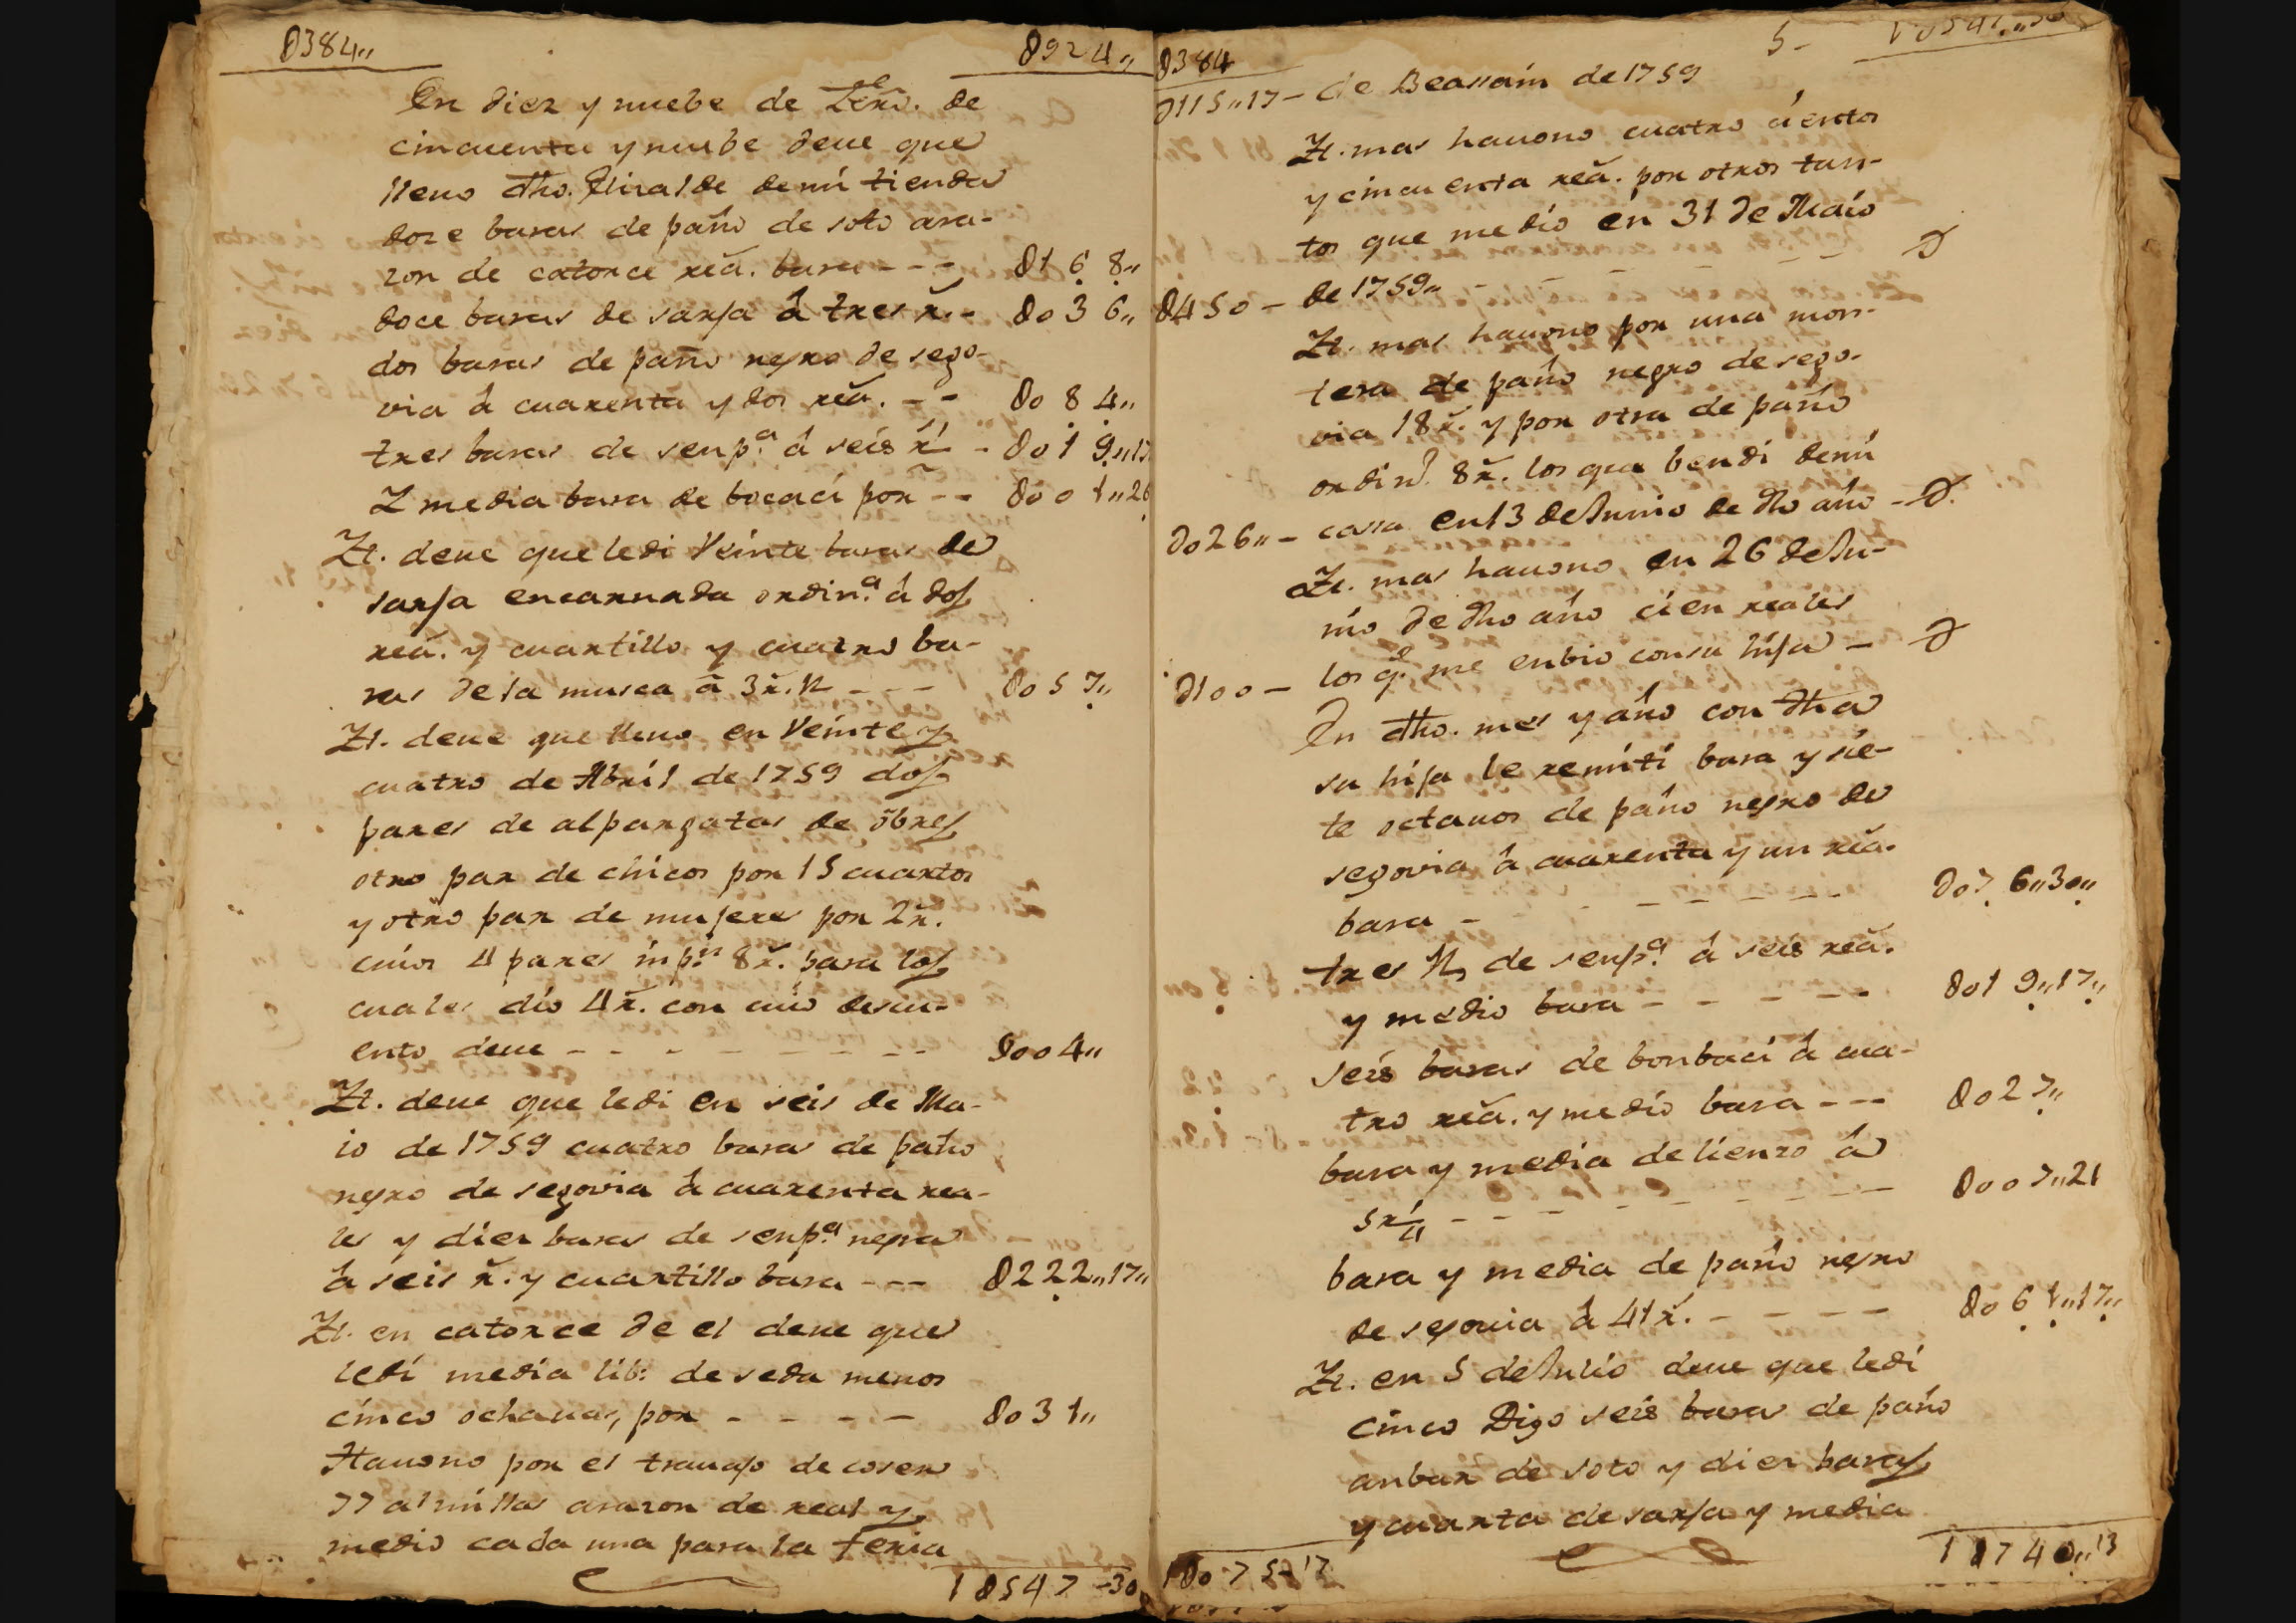 0384,,
0924,,
En diez y nuebe de Febro. de
cincuenta y nuebe deue que
lleuo dho. Elizalde de mi tienda
doze baras de paño de soto ara-
zon de catorce rea. bara - - - 0168,,
doce baras de sarja â tres r. - 0036,,
dos baras de paño negro de sego-
via â cuarenta y dos rea. - - 0084,,
tres baras de senpa. â seis r 1/2 - 0019,,17
Y media bara de bocací por - - 0001,,26
Yt. deue que le di Veinte baras de
sarja encarnada ordina. â dos
rea. y cuartillo y cuatro ba-
ras de la musca â 3 r. 1/2 - - - 0057,,
Yt. deue que lleuo en Veinte y
cuatro de Abril de 1759 dos
pares de alpargatas de õbres
otro par de chicos por 15 cuartos
y otro par de mujeres por 2 r.
cuios 4 pares inpn. 8 r. para los
cuales dio 4 r. con cuio descu-
ento deue - - - - - - - - - 0004,,
Yt. deue que le di en seis de Ma-
io de 1759 cuatro baras de paño
negro de segovia â cuarenta rea-
les y diez baras de senpa. negra
â seis r. y cuartillo bara - - - 0222,,17,,
Yt. en catorce de el deue que
le di media lib: de seda menos
cinco ochauas, por - - - - 0031,,
Hauono por el trauajo de coser
77 almillas arazon de real y
medio cada una para la feria
10547-30
0384
5-
10547,,30
0115,,17 - de Beasain de 1759
Yt. mas hauono cuatro cientos
y cincuenta rea. por otros tan-
tos que me dio en 31 de Maio
0450 - de 1759,, - - - - - -
Yt. mas hauono por una mon-
tera de paño negro de sego-
via 18 r. y por otra de paño
ordino. 8 r. los que bendi de mi
0026,, - cassa en 13 de Junio de dho año -
Yt. mas hauono en 26 de Ju-
nio de dho año cien reales
0100 - los qe. me enbio con su hija -
En dho. mes y año con dha
su hija le remiti bara y sie-
te octauos de paño negro de
segovia â cuarenta y un rea.
bara - - - - - - - 0076,,30,,
tres Vs de senpa. â seis rea.
y medio bara - - - - - 0019,,17,,
seis baras de bonbací â cua-
tro rea. y medio bara - - - 0027,,
bara y media de lienzo â
5 r 1/4 - - - - - - - - - 0007,,21
bara y media de paño negro
de segouia â 41 r. - - - - 0061,,17,,
Yt. en 5 de Julio deue que le di
cinco Digo seis baras de paño
anbar de soto y diez baras
y cuarta de sarja y media
1075-17
10740,,13